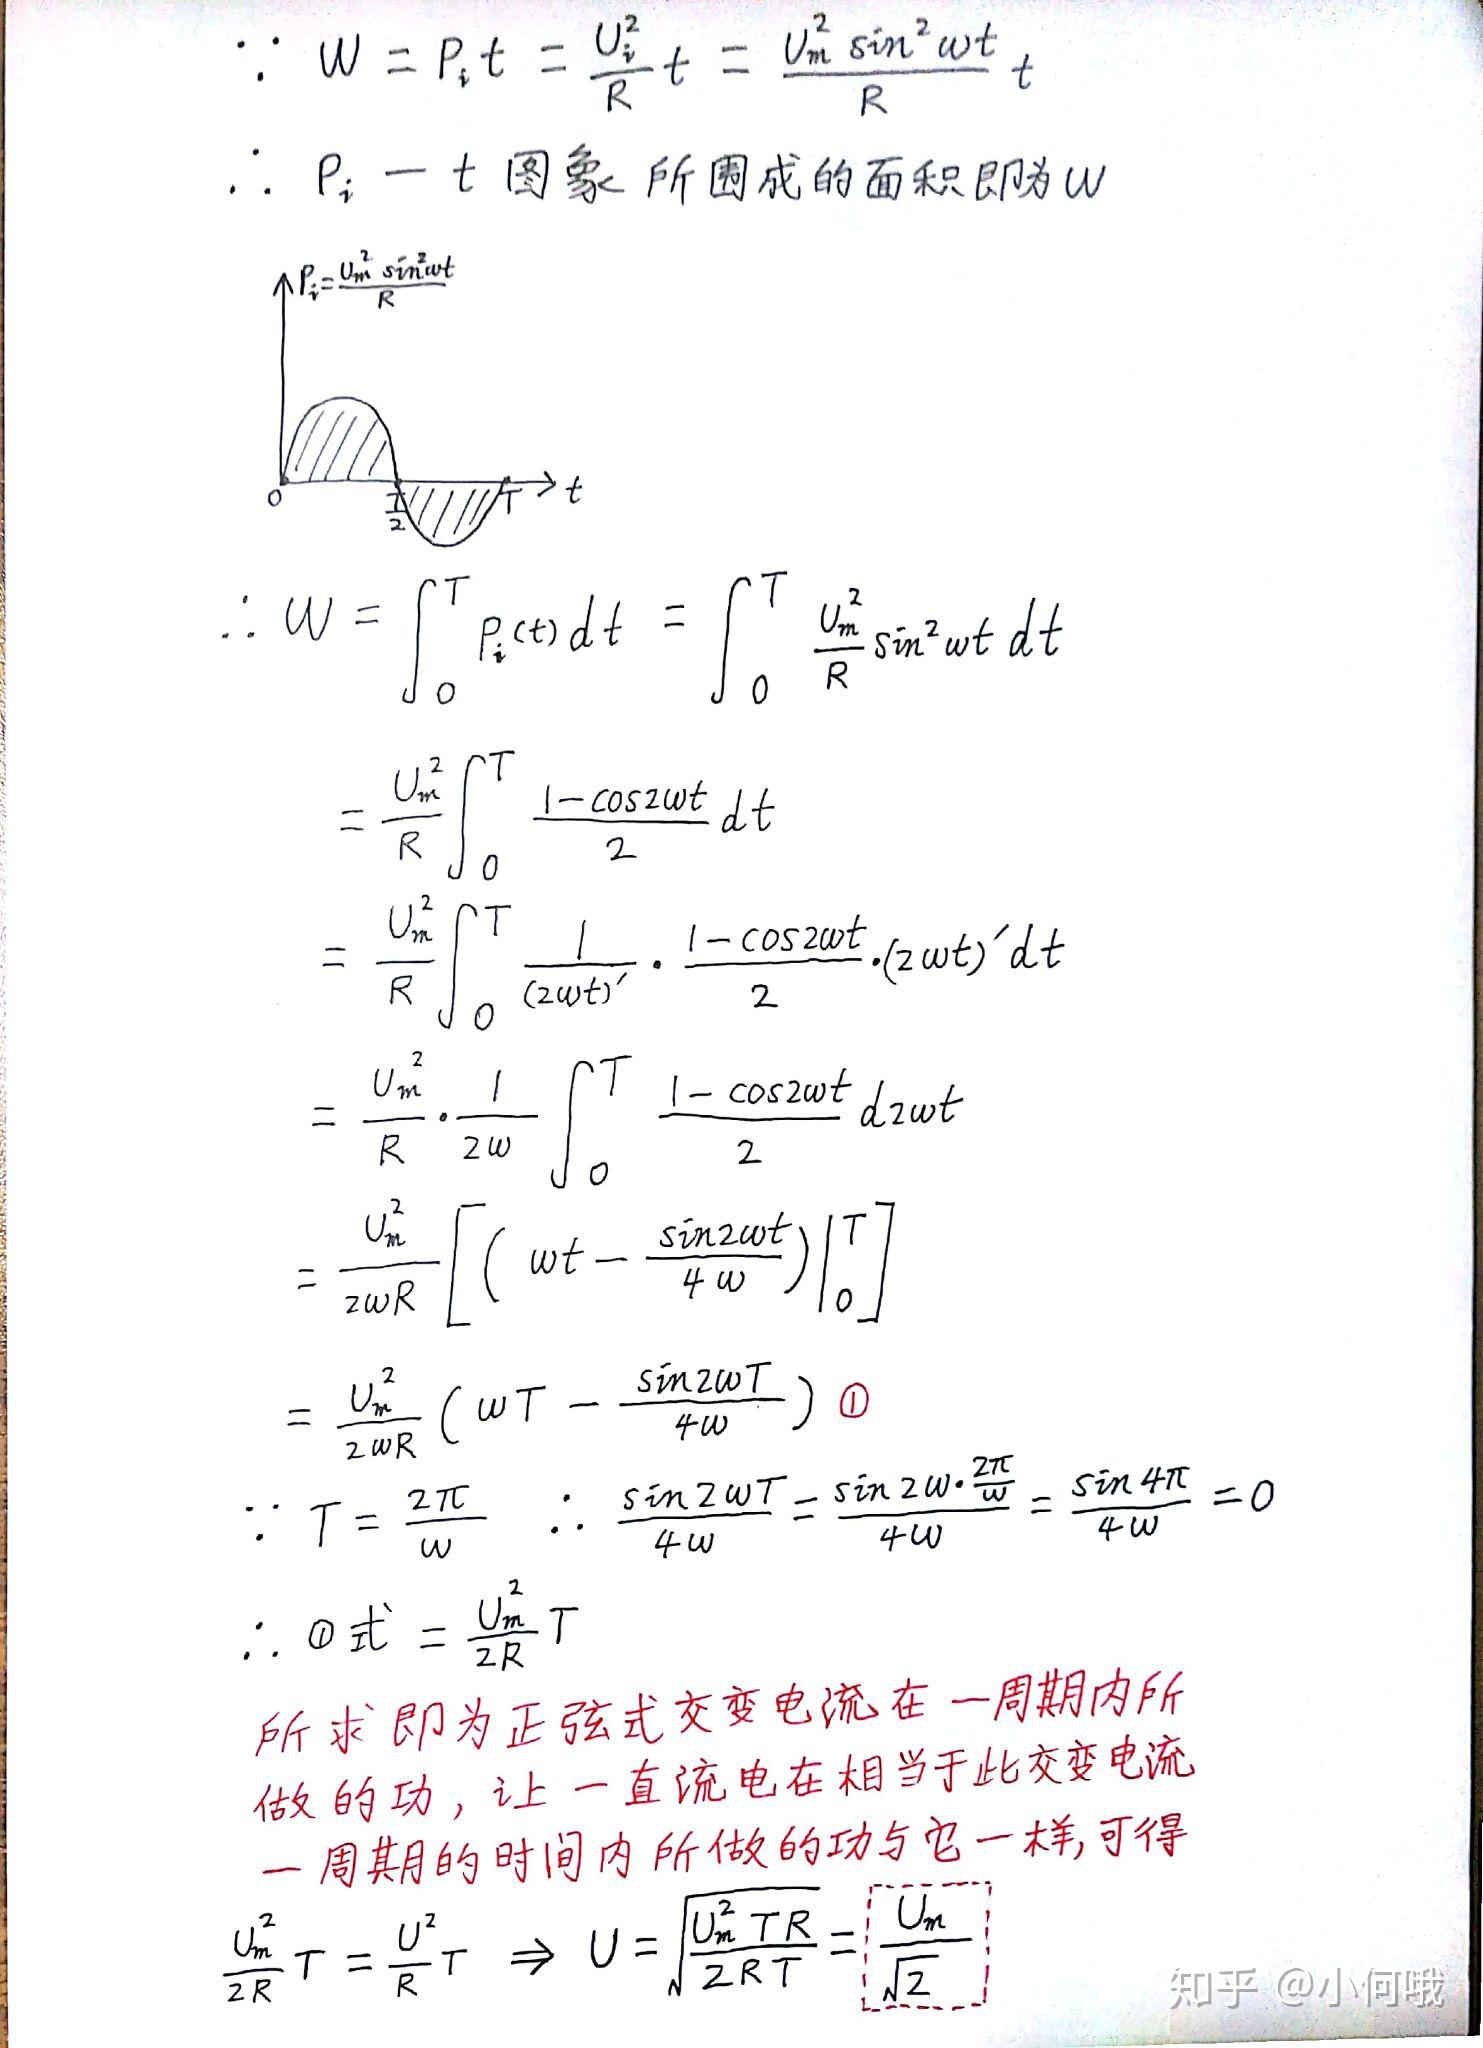 ∵ W = Pᵢt = Uᵢ²/R t = Uₘ² sin²ωt/R t
∴ Pᵢ — t 图象所围成的面积即为W
Pᵢ = Uₘ² sin²ωt/R
0 T/2 T t
∴ W = ∫₀ᵀ Pᵢ(t)dt = ∫₀ᵀ Uₘ²/R sin²ωt dt
= Uₘ²/R ∫₀ᵀ (1-cos2ωt)/2 dt
= Uₘ²/R ∫₀ᵀ 1/(2ωt)′ · (1-cos2ωt)/2 · (2ωt)′dt
= Uₘ²/R · 1/2ω ∫₀ᵀ (1-cos2ωt)/2 d2ωt
= Uₘ²/2ωR [(ωt - sin2ωt/4ω)|₀ᵀ]
= Uₘ²/2ωR (ωT - sin2ωT/4ω) ①
∵ T = 2π/ω ∴ sin2ωT/4ω = sin2ω·2π/ω/4ω = sin4π/4ω = 0
∴ ①式 = Uₘ²/2R T
所求即为正弦式交变电流在一周期内所
做的功，让一直流电在相当于此交变电流
一周期的时间内所做的功与它一样,可得
Uₘ²/2R T = U²/R T ⇒ U = √(Uₘ²TR/2RT) = Uₘ/√2
知乎 @小何哦